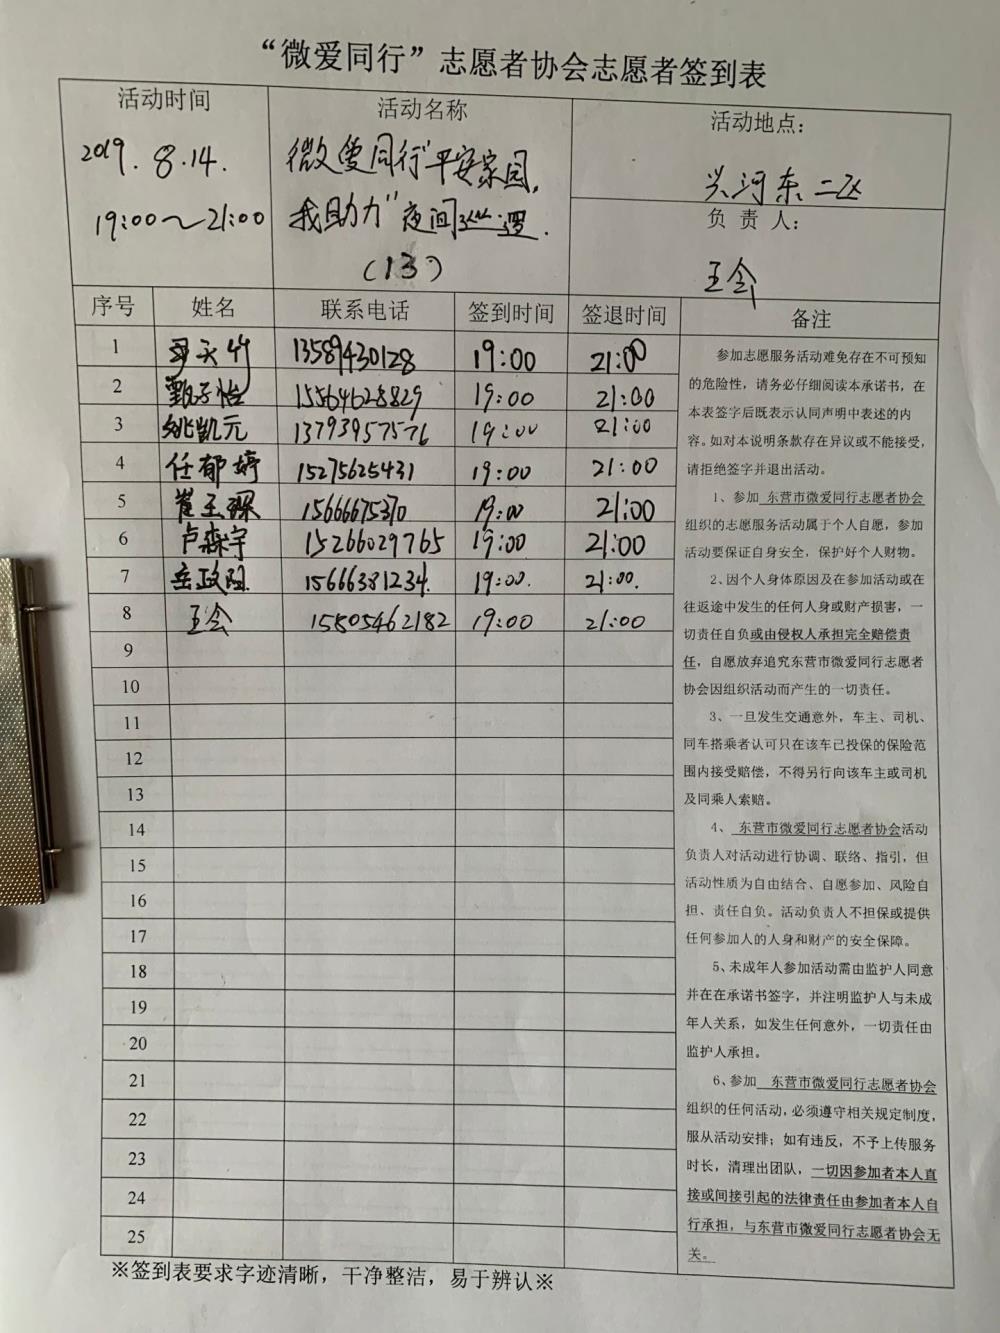 “微爱同行”志愿者协会志愿者签到表
活动时间
2019.8.14.
19:00～21:00
活动名称
微爱同行“平安家园，
我助力”夜间巡逻.
(13)
活动地点：
兴河东二区
负 责 人：
王会
序号 姓名 联系电话 签到时间 签退时间 备注
1 13589430128 19:00 21:00
2 甄子怡 15564628829 19:00 21:00
3 姚凯元 13793957576 19:00 21:00
4 任郁婷 15275625431 19:00 21:00
5 崔玉琛 15666675370 19:00 21:00
6 卢森宇 15266029765 19:00 21:00
7 岳政阳 15666381234. 19:00. 21:00.
8 王会 15805462182 19:00 21:00
9
10
11
12
13
14
15
16
17
18
19
20
21
22
23
24
25
参加志愿服务活动难免存在不可预知
的危险性，请务必仔细阅读本承诺书，在
本表签字后既表示认同声明中表述的内
容。如对本说明条款存在异议或不能接受，
请拒绝签字并退出活动。
1、参加 东营市微爱同行志愿者协会
组织的志愿服务活动属于个人自愿，参加
活动要保证自身安全，保护好个人财物。
2、因个人身体原因及在参加活动或在
往返途中发生的任何人身或财产损害，一
切责任自负或由侵权人承担完全赔偿责
任，自愿放弃追究东营市微爱同行志愿者
协会因组织活动而产生的一切责任。
3、一旦发生交通意外，车主、司机、
同车搭乘者认可只在该车已投保的保险范
围内接受赔偿，不得另行向该车主或司机
及同乘人索赔。
4、 东营市微爱同行志愿者协会活动
负责人对活动进行协调、联络、指引，但
活动性质为自由结合、自愿参加、风险自
担、责任自负。活动负责人不担保或提供
任何参加人的人身和财产的安全保障。
5、未成年人参加活动需由监护人同意
并在在承诺书签字，并注明监护人与未成
年人关系，如发生任何意外，一切责任由
监护人承担。
6、参加 东营市微爱同行志愿者协会
组织的任何活动，必须遵守相关规定制度，
服从活动安排；如有违反，不予上传服务
时长，清理出团队，一切因参加者本人直
接或间接引起的法律责任由参加者本人自
行承担，与东营市微爱同行志愿者协会无
关。
※签到表要求字迹清晰，干净整洁，易于辨认※